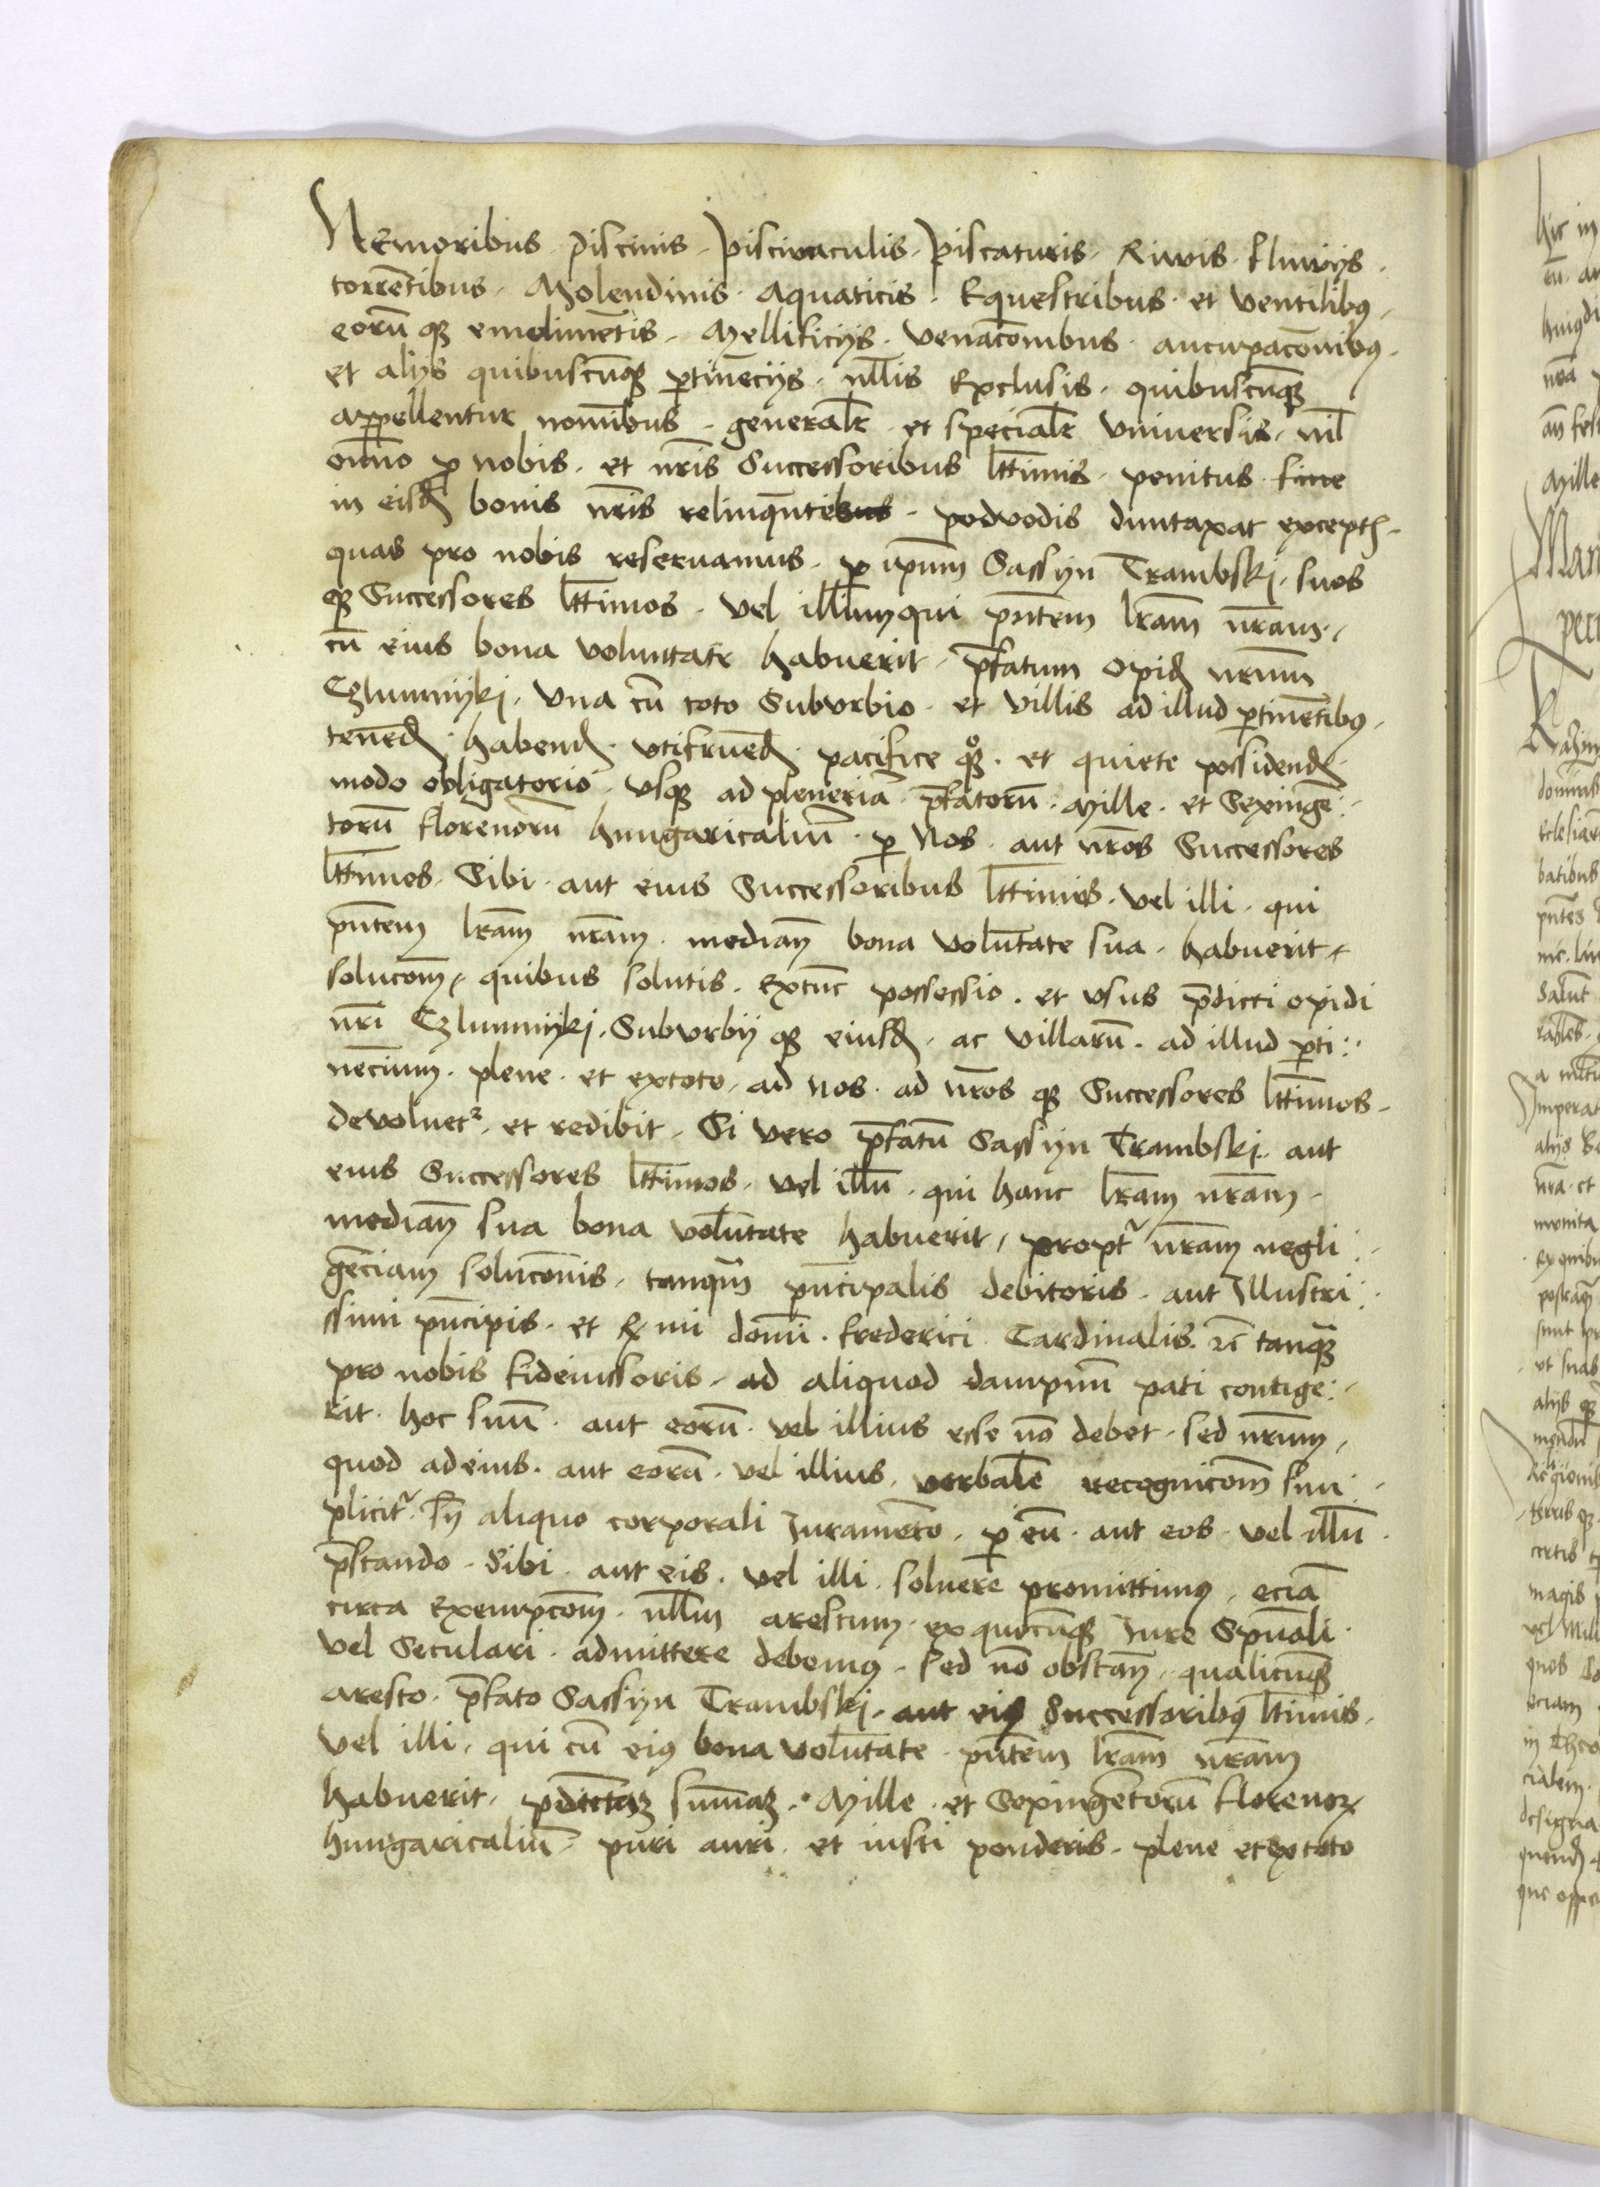 Nemoribus · piscinis · pisciwaculis · piscaturis · Riwis · fluwijs ·
torrētibus · Molendinis · Aquaticis · Equestribus · et ventilibꝰ ·
eorū qꝫ emolimētis · Mellificijs · venacōnibus · aucupacōnibꝰ ·
et alijs quibuscūqꝫ ꝑtinēcijs · nll̄is Exclusis · quibuscūqꝫ
appellentur nomībus · generalr̄ · et specialr̄ vniuersis · nil̄
om̄no ꝓ nobis · et nr̄is Successoribus ltt̄imis · penitus · siue
in eisd̄ bonis nr̄is relinquētibus · podvodis duntaxat except̄ ·
quas pro nobis reseruamus · ꝑ ip̄um Sassijn Trambskj · suos
qꝫ Successores ltt̄imos · vel illū qui pn̄tem lr̄am nr̄am ·
cū eius bona voluntate habuerit · pr̄fatum opid̄ nr̄um
Czlumnijkj · vna cū toto Subvrbio · et villis ad illud ꝑtinētibꝰ ·
tenēd̄ · habend̄ · vtifruēd̄ · pacifice qꝫ · et quiete possidend̄ ·
modo obligatorio · vsqꝫ ad pleneriā pr̄fatorū · Mille · et Sexinge :
torū florenorū hungaricaliū · ꝑ Nos · aut nr̄os Successores
ltt̄imos · Sibi · aut eius Successoribus ltt̄imis · vel illi · qui
pn̄tem lr̄am nr̄am · median̄ bona volūtate sua · habuerit ·
solucōm · quibus solutis · Extūc possessio · et vsus pr̄dicti opidi
nr̄i Czlumnijkj · Subvrbij qꝫ eiusd̄ · ac villarū · ad illud ꝑti :
nēcium · plene · et extoto · ad nos · ad nr̄os qꝫ Successores ltt̄imos ·
devoluet᷑ · et redibit · Si vero pr̄fatū Sassijn Trambskj · aut
eius Successores ltt̄imos · vel illū · qui hanc lr̄am nr̄am ·
median̄ sua bona volūtate habuerit · propt᷑ nr̄am negli :
gēciam solucōnis · tanquā pn̄cipalis debitoris · aut Illustri :
ssimi pn̄cipis · et R mi domi · frederici · Cardinalis · ⁊c̄ tanquā
pro nobis fideiussoris · ad aliquod dampnū pati contige :
rit · hoc suū · aut eorū · vel illius esse nō debet · sed nr̄um ·
quod ad eius · aut eorū · vel illius · verbalē recognicōm sim :
plicit᷑ · sn̄ aliquo corporali Iuramēto · ꝑ eū · aut eos · vel illū ·
pr̄stando · Sibi · aut eis · vel illi · soluere promittimꝰ · eciā
circa Exempcōm · nll̄m arestum · ex quocūqꝫ Iure Spūali ·
vel Seculari · admittere debemꝰ · sed nō obstan̄ · qualicūqꝫ
aresto · pr̄fato Sassijn Trambskj · aut eiꝰ Successoribꝰ ltt̄imis ·
vel illi · qui cū eiꝰ bona volūtate · pn̄tem lr̄am nr̄am
habuerit · pr̄dictaꝫ sum̄aꝫ · Mille · et Sexingētorū florenoꝝ
hungaricaliū · puri auri · et iusti ponderis · plene et extoto